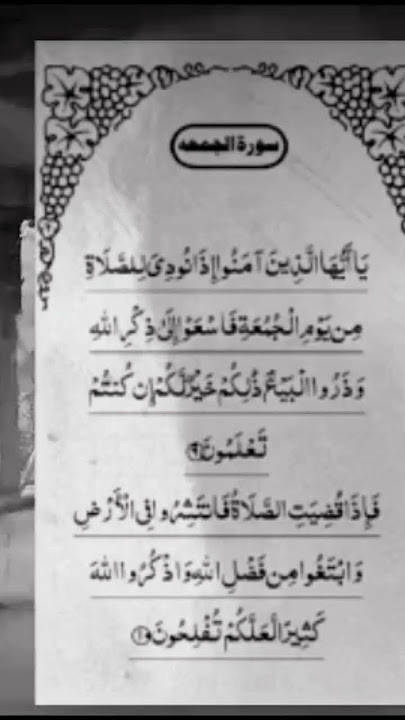 سورة الجمعه
يَا أَيُّهَا الَّذِينَ آمَنُوا إِذَا نُودِيَ لِلصَّلَاةِ
مِن يَوْمِ الْجُمُعَةِ فَاسْعَوْا إِلَىٰ ذِكْرِ اللَّهِ
وَذَرُوا الْبَيْعَ ذَٰلِكُمْ خَيْرٌ لَّكُمْ إِن كُنتُمْ
تَعْلَمُونَ ٩
فَإِذَا قُضِيَتِ الصَّلَاةُ فَانتَشِرُوا فِي الْأَرْضِ
وَابْتَغُوا مِن فَضْلِ اللَّهِ وَاذْكُرُوا اللَّهَ
كَثِيرًا لَّعَلَّكُمْ تُفْلِحُونَ ١٠